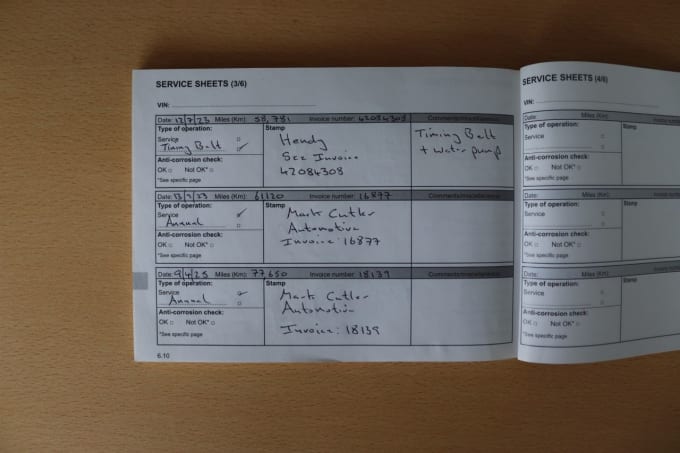 SERVICE SHEETS (3/6)
VIN:
Date: 12/7/23 Miles (Km): 58,781 Invoice number: 42084308 Comments/miscellaneous
Type of operation:
Service
Timing Belt ✓
Anti-corrosion check:
OK □ Not OK* □
*See specific page
Stamp
Hendy
See Invoice
42084308
Timing Belt
+ Water pump
Date: Miles (Km): 61120 Invoice number: 16877 Comments/miscellaneous
Type of operation:
Service ✓
Annual □
Anti-corrosion check:
OK □ Not OK* □
*See specific page
Stamp
Mark Cutler
Automotive
Invoice: 16877
Date: 9/4/25 Miles (Km): 77,650 Invoice number: 18139 Comments/miscellaneous
Type of operation:
Service ✓
Annual □
Anti-corrosion check:
OK □ Not OK* □
*See specific page
Stamp
Mark Cutler
Automotive
Invoice: 18139
6.10
SERVICE SHEETS (4/6)
VIN:
Date: Miles (Km): Invoice
Type of operation:
Service □
□
Anti-corrosion check:
OK □ Not OK* □
*See specific page
Stamp
Date: Miles (Km): Invoice
Type of operation:
Service □
□
Anti-corrosion check:
OK □ Not OK* □
*See specific page
Stamp
Date: Miles (Km): Invoice
Type of operation:
Service □
□
Anti-corrosion check:
OK □ Not OK* □
*See specific page
Stamp